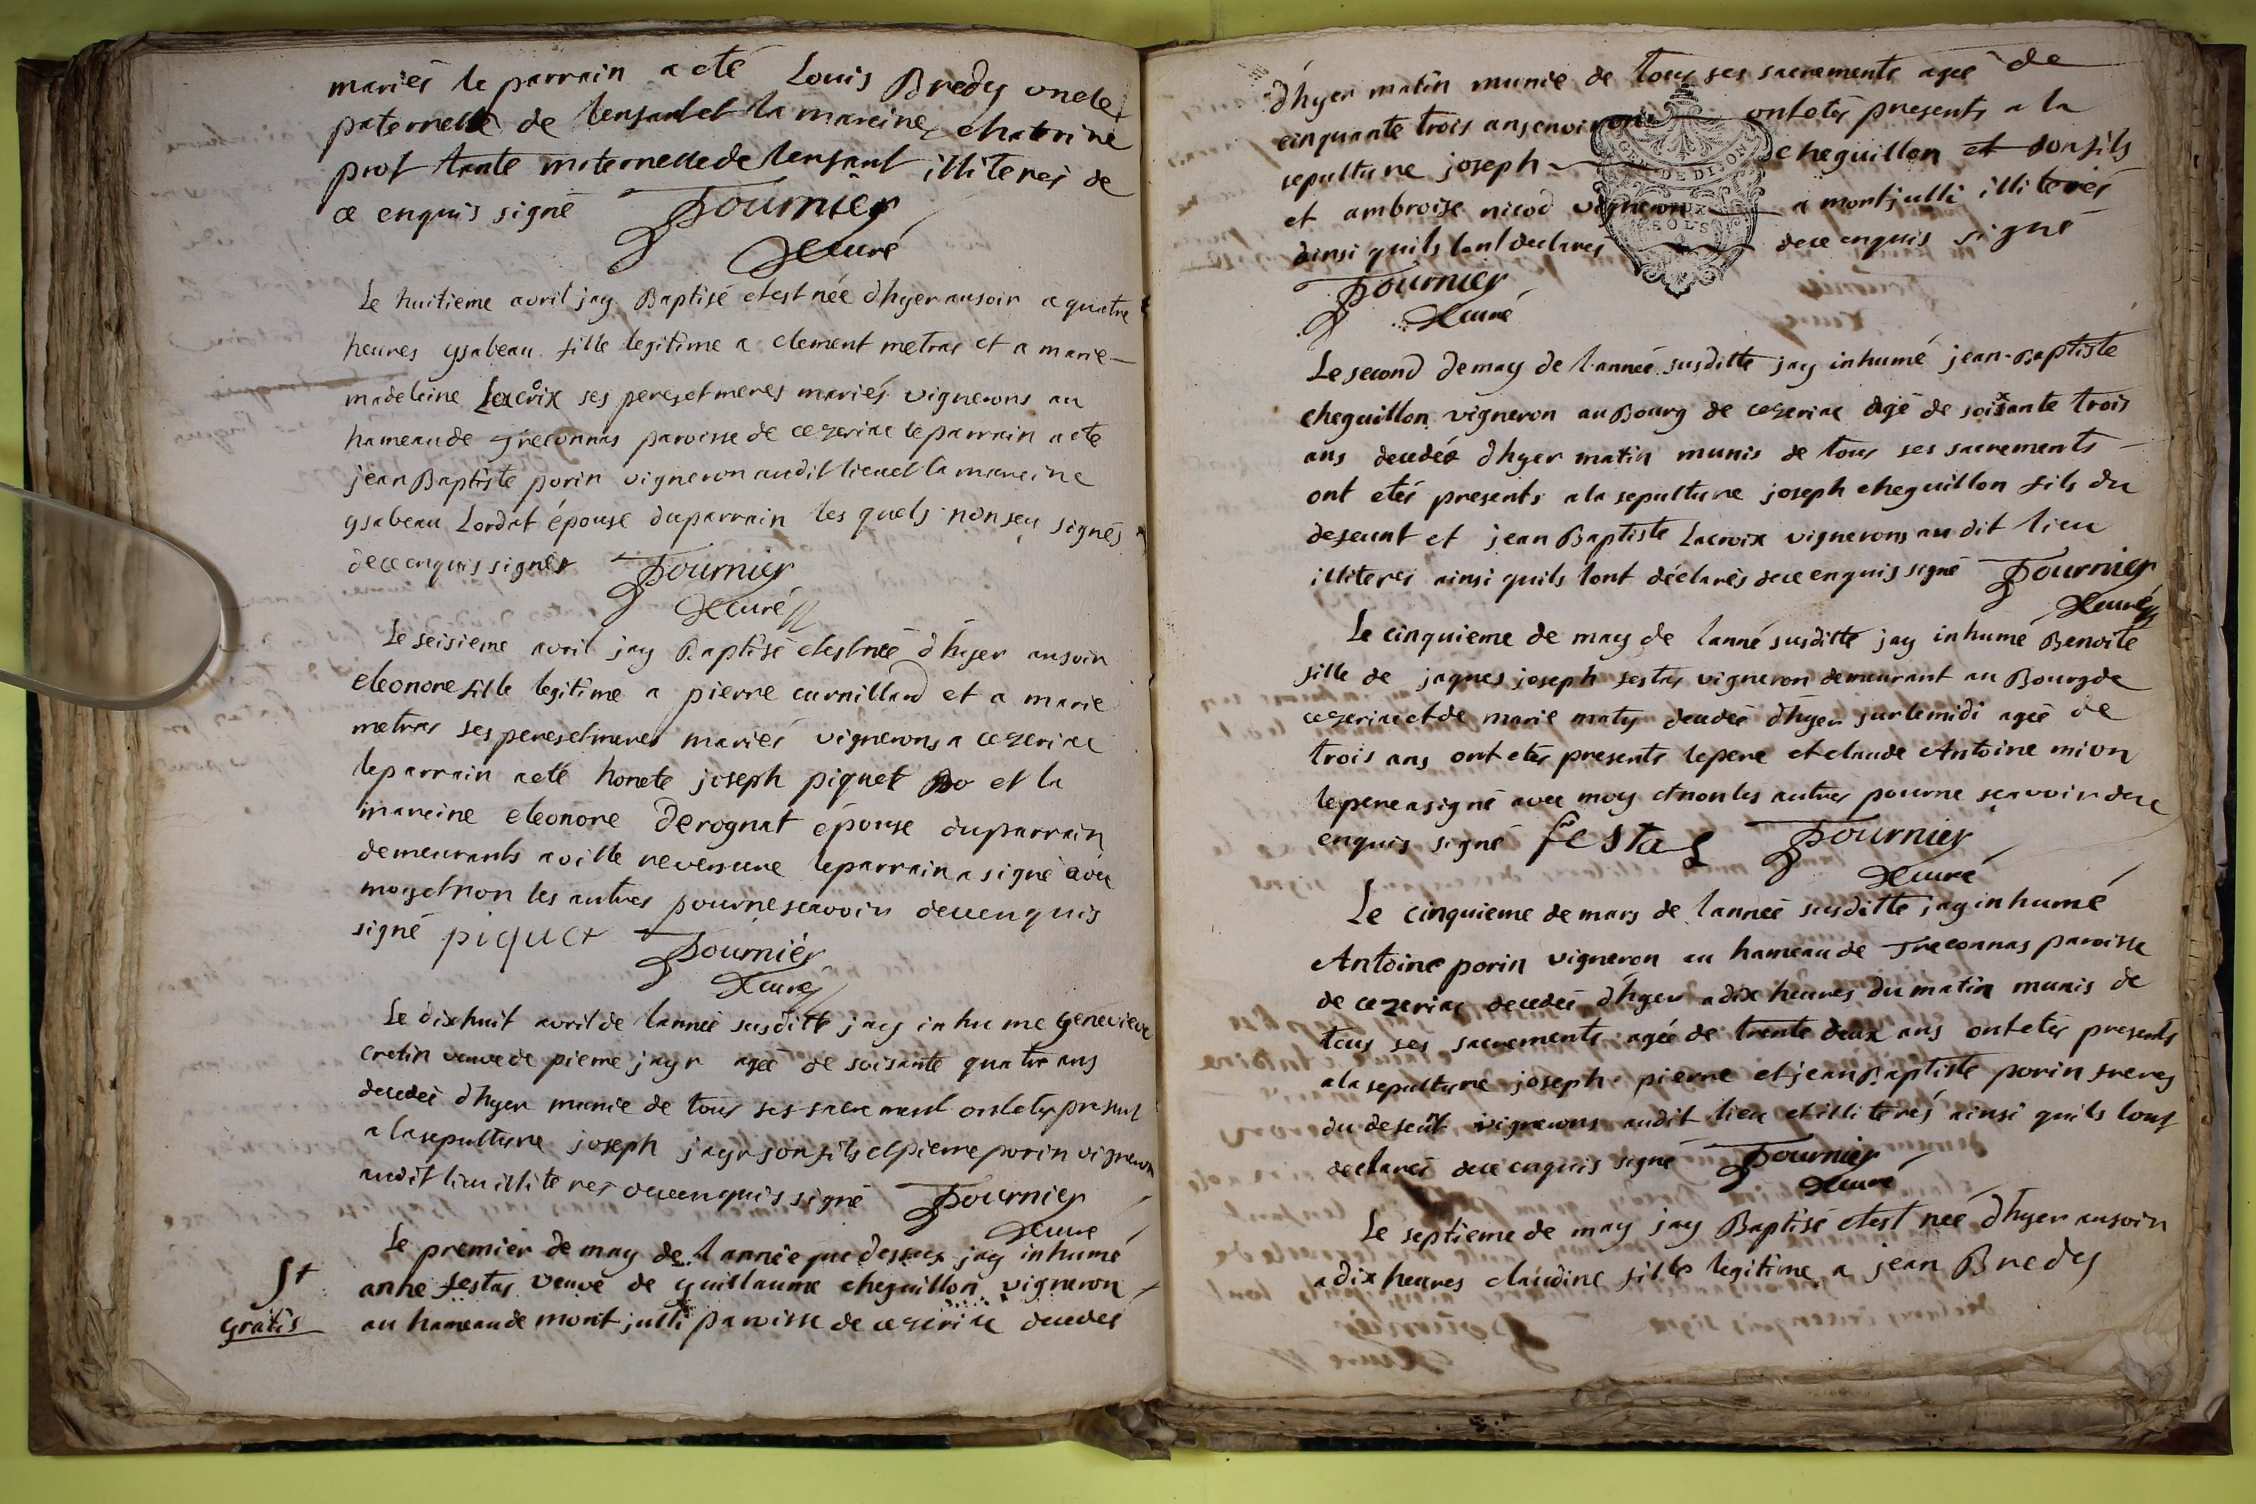 mariés le parrain a eté Louis Bredy oncle
paternelle de lenfant et la mareine chatrine
prot tante maternelle de lenfant illiteres de
ce enquis signé Fournier
Curé
Le huitieme avril jay Baptisé et est née dhyer au soir a quatre
heures ysabeau fille legitime a clement metras et a marie
madeleine Lacroix ses peres et meres mariés vignerons au
hameau de Treconnas paroisse de cezeriac le parrain a eté
jean Baptiste porin vigneron au dit lieu et la mareine
ysabeau Lordat épouse du parrain les quels non seu signés
de ce enquis signés Fournier
Curé
Le seisieme avril jay Baptisé et est née dhyer au soir
eleonore fille legitime a pierre curnilland et a marie
metras ses peres et meres mariés vignerons a cezeriac
le parrain a eté honete joseph piquet et la
mareine eleonore Derognat épouse du parrain
demeurants a ville reversure le parrain a signé avec
moy et non les autres pour ne scavoir de ce enquis
signé piquet Fournier
Curé
Le dixhuit avril de lannée susditte jay inhumé Genevieve
cretin veuve de pierre jayr agée de soisante quatre ans
decedée dhyer munie de tous ses sacrement ont etes present
a la sepulture joseph jayr son fils et pierre porin vigneron
au dit lieu illiteres de ce enquis signé Fournier
Curé
Le premier de may de lannée que dessus jay inhumé
St anne festas veuve de guillaume cheguillon vigneron
gratis au hameau de mont julli paroisse de cezeriac decedes
dhyer matin munie de tous ses sacrements agée de
cinquante trois ans environ ont etés presents a la
sepulture joseph cheguillon et son fils
et ambroise nicod vigneron a montjulli illiterés
ainsi quils lont declarés de ce enquis signé
GEN DE DIJON
DEUX
SOLS
Fournier
Curé
Le second de may de lannée susditte jay inhumé jean-Baptiste
cheguillon vigneron au Bourg de cezeriac agé de soixante trois
ans decedés dhyer matin munis de tous ses sacrements
ont etés presents a la sepulture joseph cheguillon fils du
defunt et jean Baptiste Lacroix vignerons au dit lieu
illiterés ainsi quils lont déclarés de ce enquis signé Fournier
Curé
Le cinquieme de may de lanné susditte jay inhumé Benoite
fille de jaques joseph festas vigneron demeurant au Bourg de
cezeriac et de marie maty decedée dhyer sur le midi agée de
trois ans ont etés presents le pere et claude Antoine mion
le pere a signé avec moy et non les autres pour ne scavoir de ce
enquis signé festas Fournier
Curé
Le cinquieme de mars de lannée susditte jay inhumé
Antoine porin vigneron au hameau de Treconnas paroisse
de cezeriac decedés dhyer a dix heures du matin munis de
tous ses sacrements agée de trente deux ans ont etés presents
a la sepulture joseph pierre et jean Baptiste porin freres
du defunt vignerons au dit lieu et illiterés ainsi quils lont
declarés de ce enquis signé Fournier
Curé
Le septieme de may jay Baptisé et est née dhyer au soir
a dix heures claudine fille legitime a jean Bredy